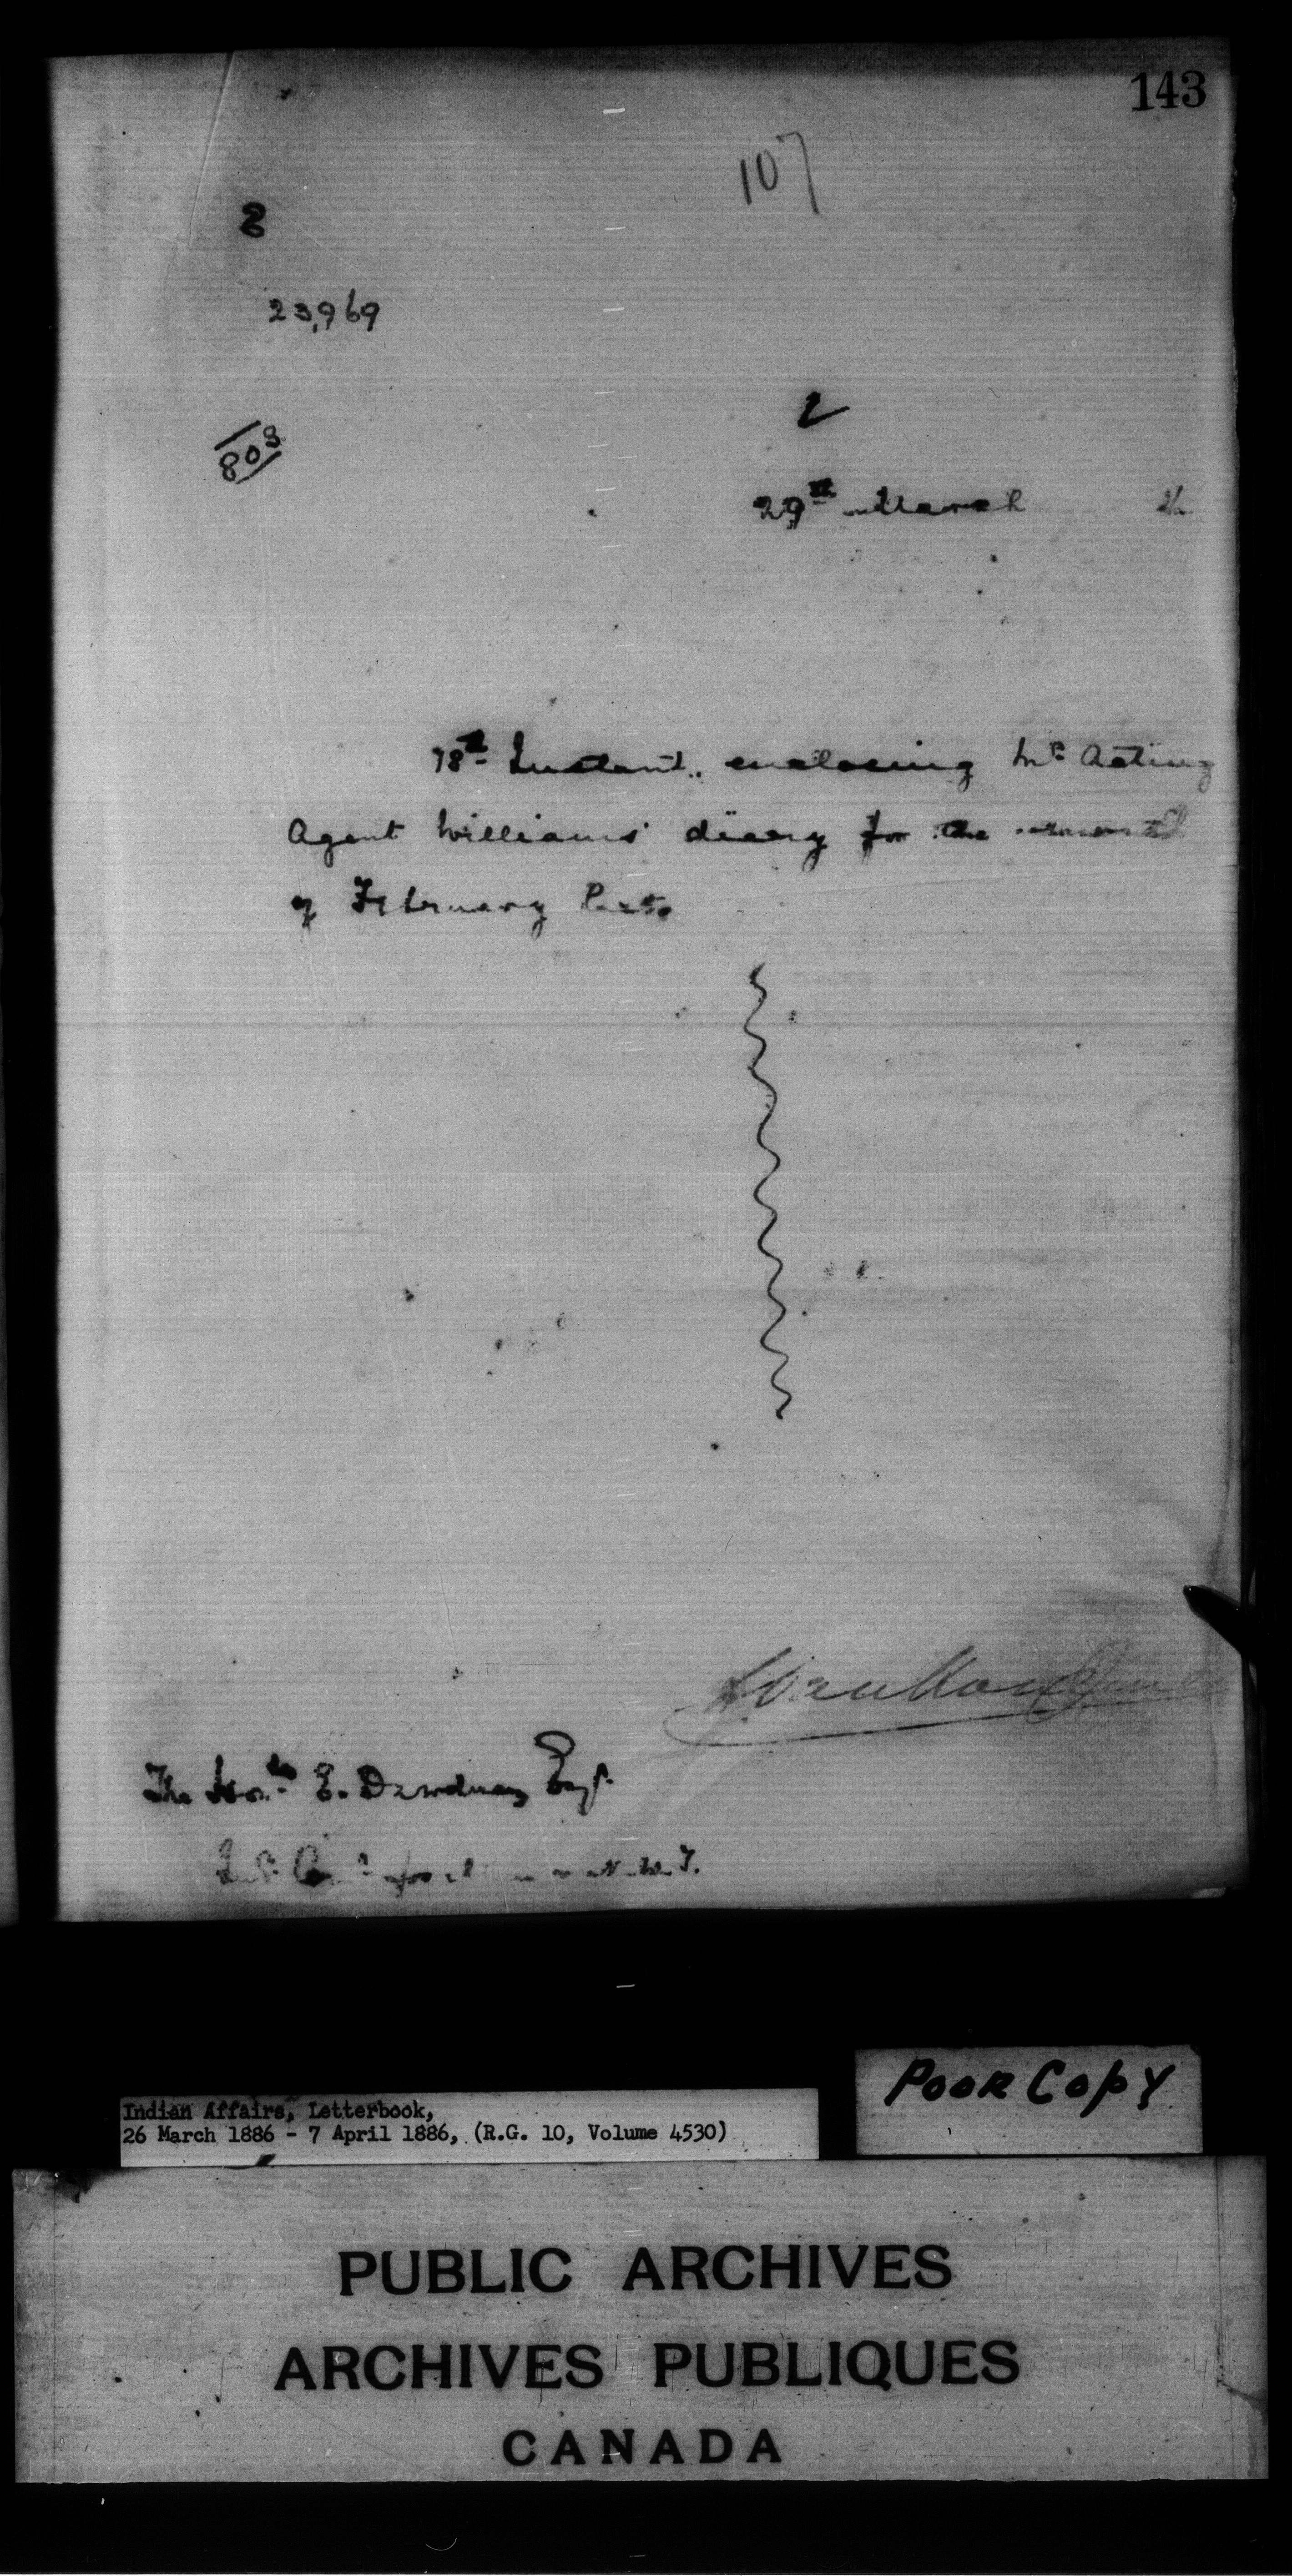 143
107
8
23,969
803
2
29th March
18th Instant. enclosing Mr Acting
Agent Williams' diary for the month
of February Past.
The Honble E. Dewdney Esq.
N.W.T.
Poor Copy
Indian Affairs, Letterbook,
26 March 1886 - 7 April 1886, (R.G. 10, Volume 4530)
PUBLIC ARCHIVES
ARCHIVES PUBLIQUES
CANADA